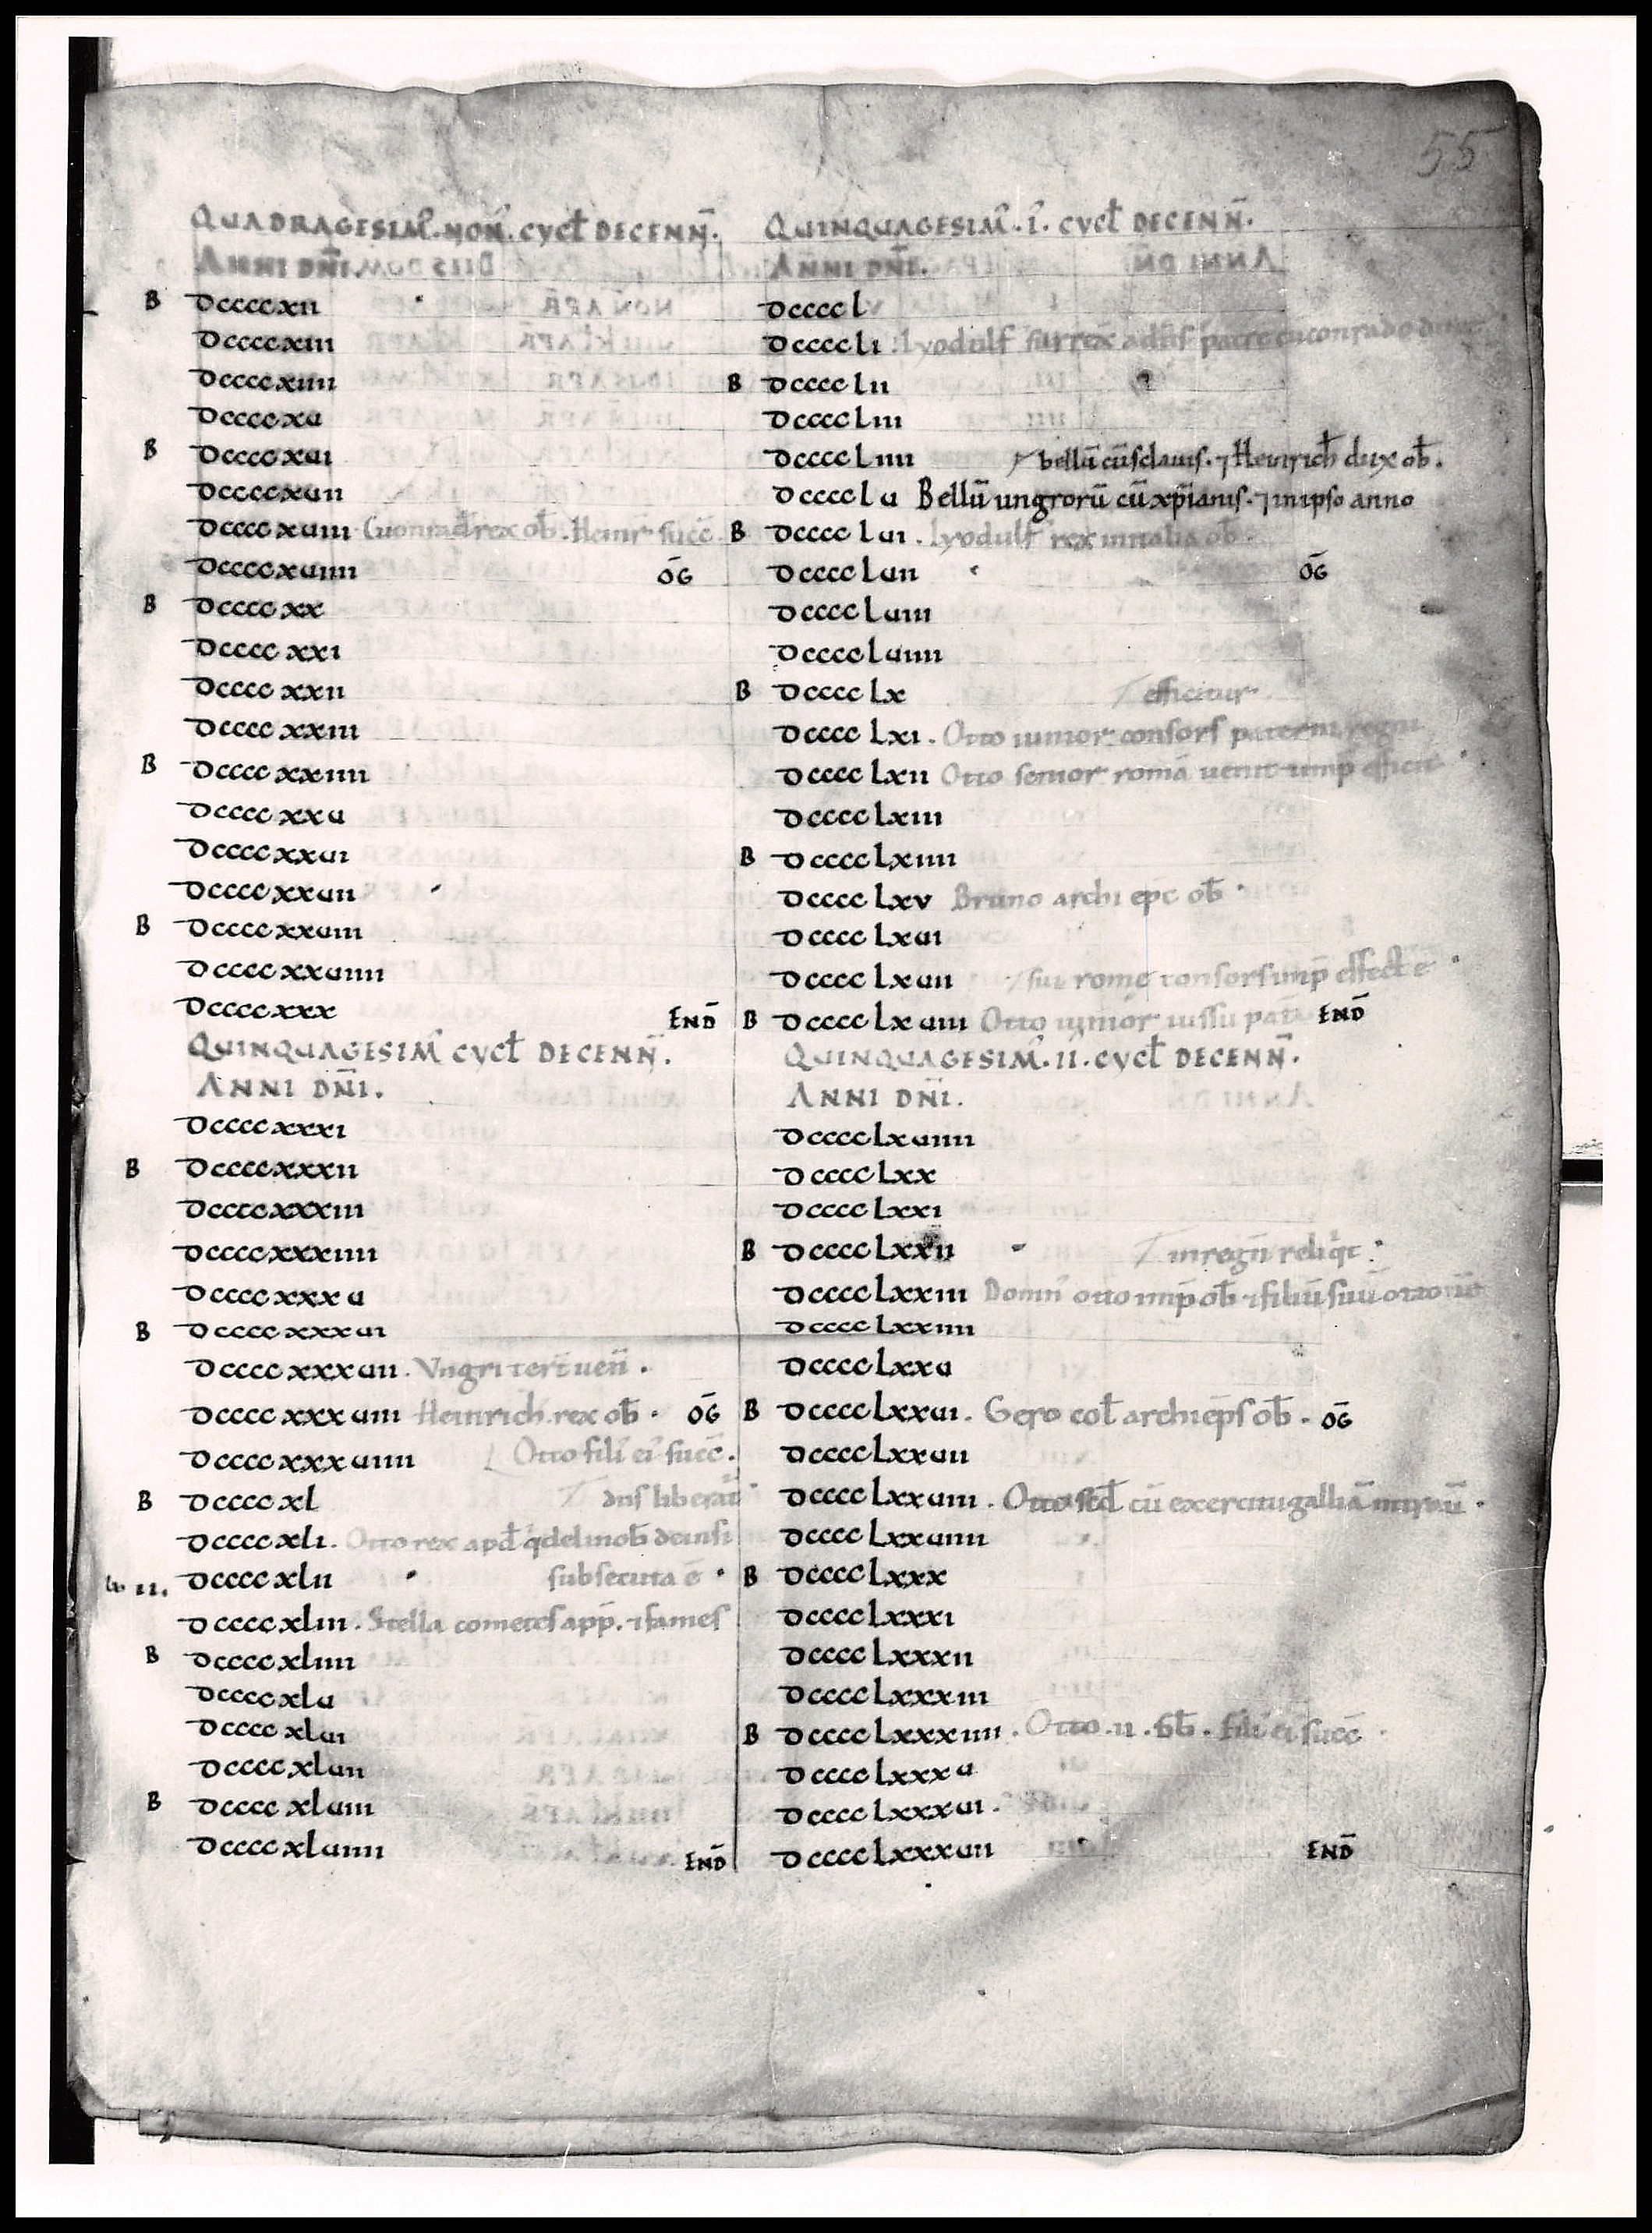 55
QUADRAGESIM̄. NON̄. CYCꝉ DECENN̄.
ANNI DN̄I.
B Dccccxii
Dccccxiii
Dccccxiiii
Dccccxu
B Dccccxui
Dccccxuii
Dccccxuiii Cuonrad rex ob̄. Heinr succ̄
Dccccxuiiii OḠ
B Dcccc xx
Dcccc xxi
Dcccc xxii
Dcccc xxiii
B Dcccc xxiiii
Dcccc xxu
Dcccc xxui
Dcccc xxuii
B Dcccc xxuiii
Dcccc xxuiiii
Dcccc xxx END̄
QUINQUAGESIM̄ CYCꝉ DECENN̄.
ANNI DN̄I.
Dcccc xxxi
B Dcccc xxxii
Dcccc xxxiii
Dcccc xxxiiii
Dcccc xxxu
B Dcccc xxxui
Dcccc xxxuii. Vngri tert̄ uen̄.
Dcccc xxxuiii Heinrich rex ob̄. OḠ
Dcccc xxxuiiii Otto fili ei succ̄.
B Dcccc xl dn̄s liberat
Dcccc xli. Otto rex apd̄ qdelinob̄ deinsi
ii. Dcccc xlii subsecuta ē.
Dcccc xliii. Stella cometes app̄. ⁊ fames
B Dcccc xliiii
Dcccc xlu
Dcccc xlui
Dcccc xluii
B Dcccc xluiii
Dcccc xluiiii END̄
QUINQUAGESIM̄. I. CYCꝉ DECENN̄.
ANNI DN̄I.
Dcccc l
Dcccc li Lyodulf surrex̄ aduſ patrē cū conrado duce
B Dcccc lii
Dcccc liii
Dcccc liiii bellū cū sclauis. ⁊ Heinrich dux ob̄.
Dcccc lu Bellū ungrorū cū xp̄ianis. ⁊ in ipso anno
B Dcccc lui. Lyodulf rex in italia ob̄.
Dcccc luii OḠ
Dcccc luiii
Dcccc luiiii
B Dcccc lx efficitur
Dcccc lxi. Otto iunior consors paterni regni
Dcccc lxii Otto senior romā uenit imp̄ efficit
Dcccc lxiii
B Dcccc lxiiii
Dcccc lxv Bruno archi ep̄c ob̄.
Dcccc lxui
Dcccc lxuii sui rome consors imp̄ effect ē
B Dcccc lxuiii Otto iunior iussu pat̄ END̄
QUINQUAGESIM̄. II. CYCꝉ DECENN̄.
ANNI DN̄I.
Dcccc lxuiiii
Dcccc lxx
Dcccc lxxi
B Dcccc lxxii in regn̄ reliqt.
Dcccc lxxiii Domn̄ otto imp̄ ob̄ ⁊ filiū suū ottonē
Dcccc lxxiiii
Dcccc lxxu
B Dcccc lxxui. Gero col archiep̄s ob̄. OḠ
Dcccc lxxuii
Dcccc lxxuiii. Otto scd̄ cū exercitu galliā intrau̅.
Dcccc lxxuiiii
B Dcccc lxxx
Dcccc lxxxi
Dcccc lxxxii
Dcccc lxxxiii
B Dcccc lxxxiiii. Otto. ii. ob̄. fili ei succ̄
Dcccc lxxxu
Dcccc lxxxui.
Dcccc lxxxuii END̄